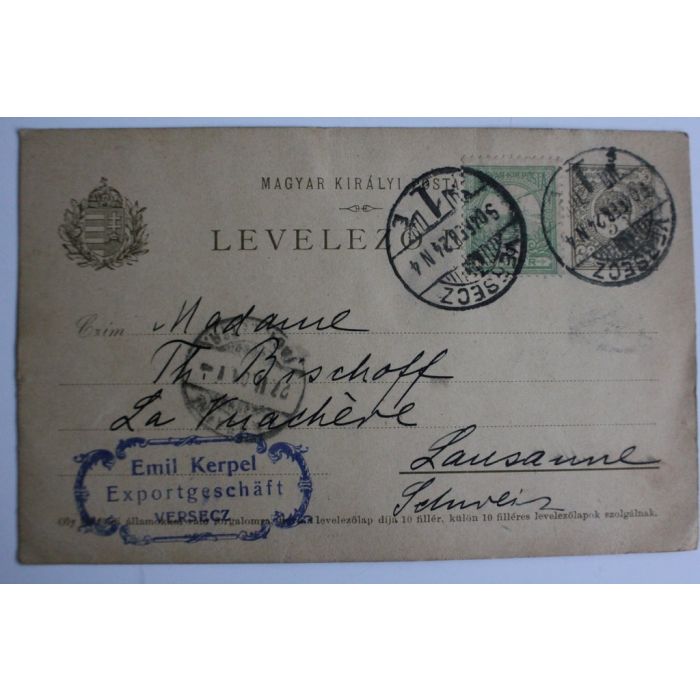 MAGYAR KIRÁLYI POSTA
LEVELEZŐ
VERSECZ
VERSECZ
Czím
Madame
Th. Bischoff
La Vuachère
Lausanne
Schweiz
Emil Kerpel
Exportgeschäft
VERSECZ
levelezőlap díja 10 fillér, külön 10 filléres levelezőlapok szolgálnak.